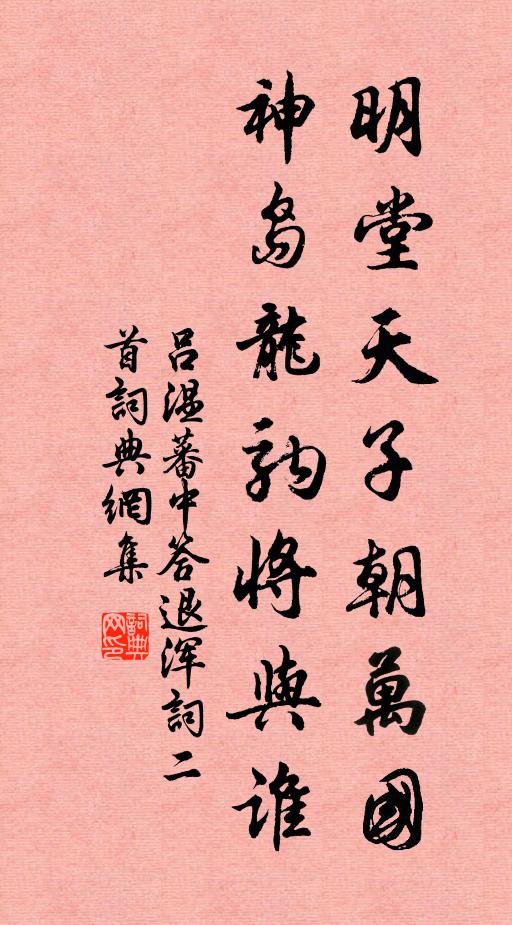 明堂天子朝萬國
神島龍駒將與誰
呂溫蕃中答退浑詞二
首詞典網集
詞典网印